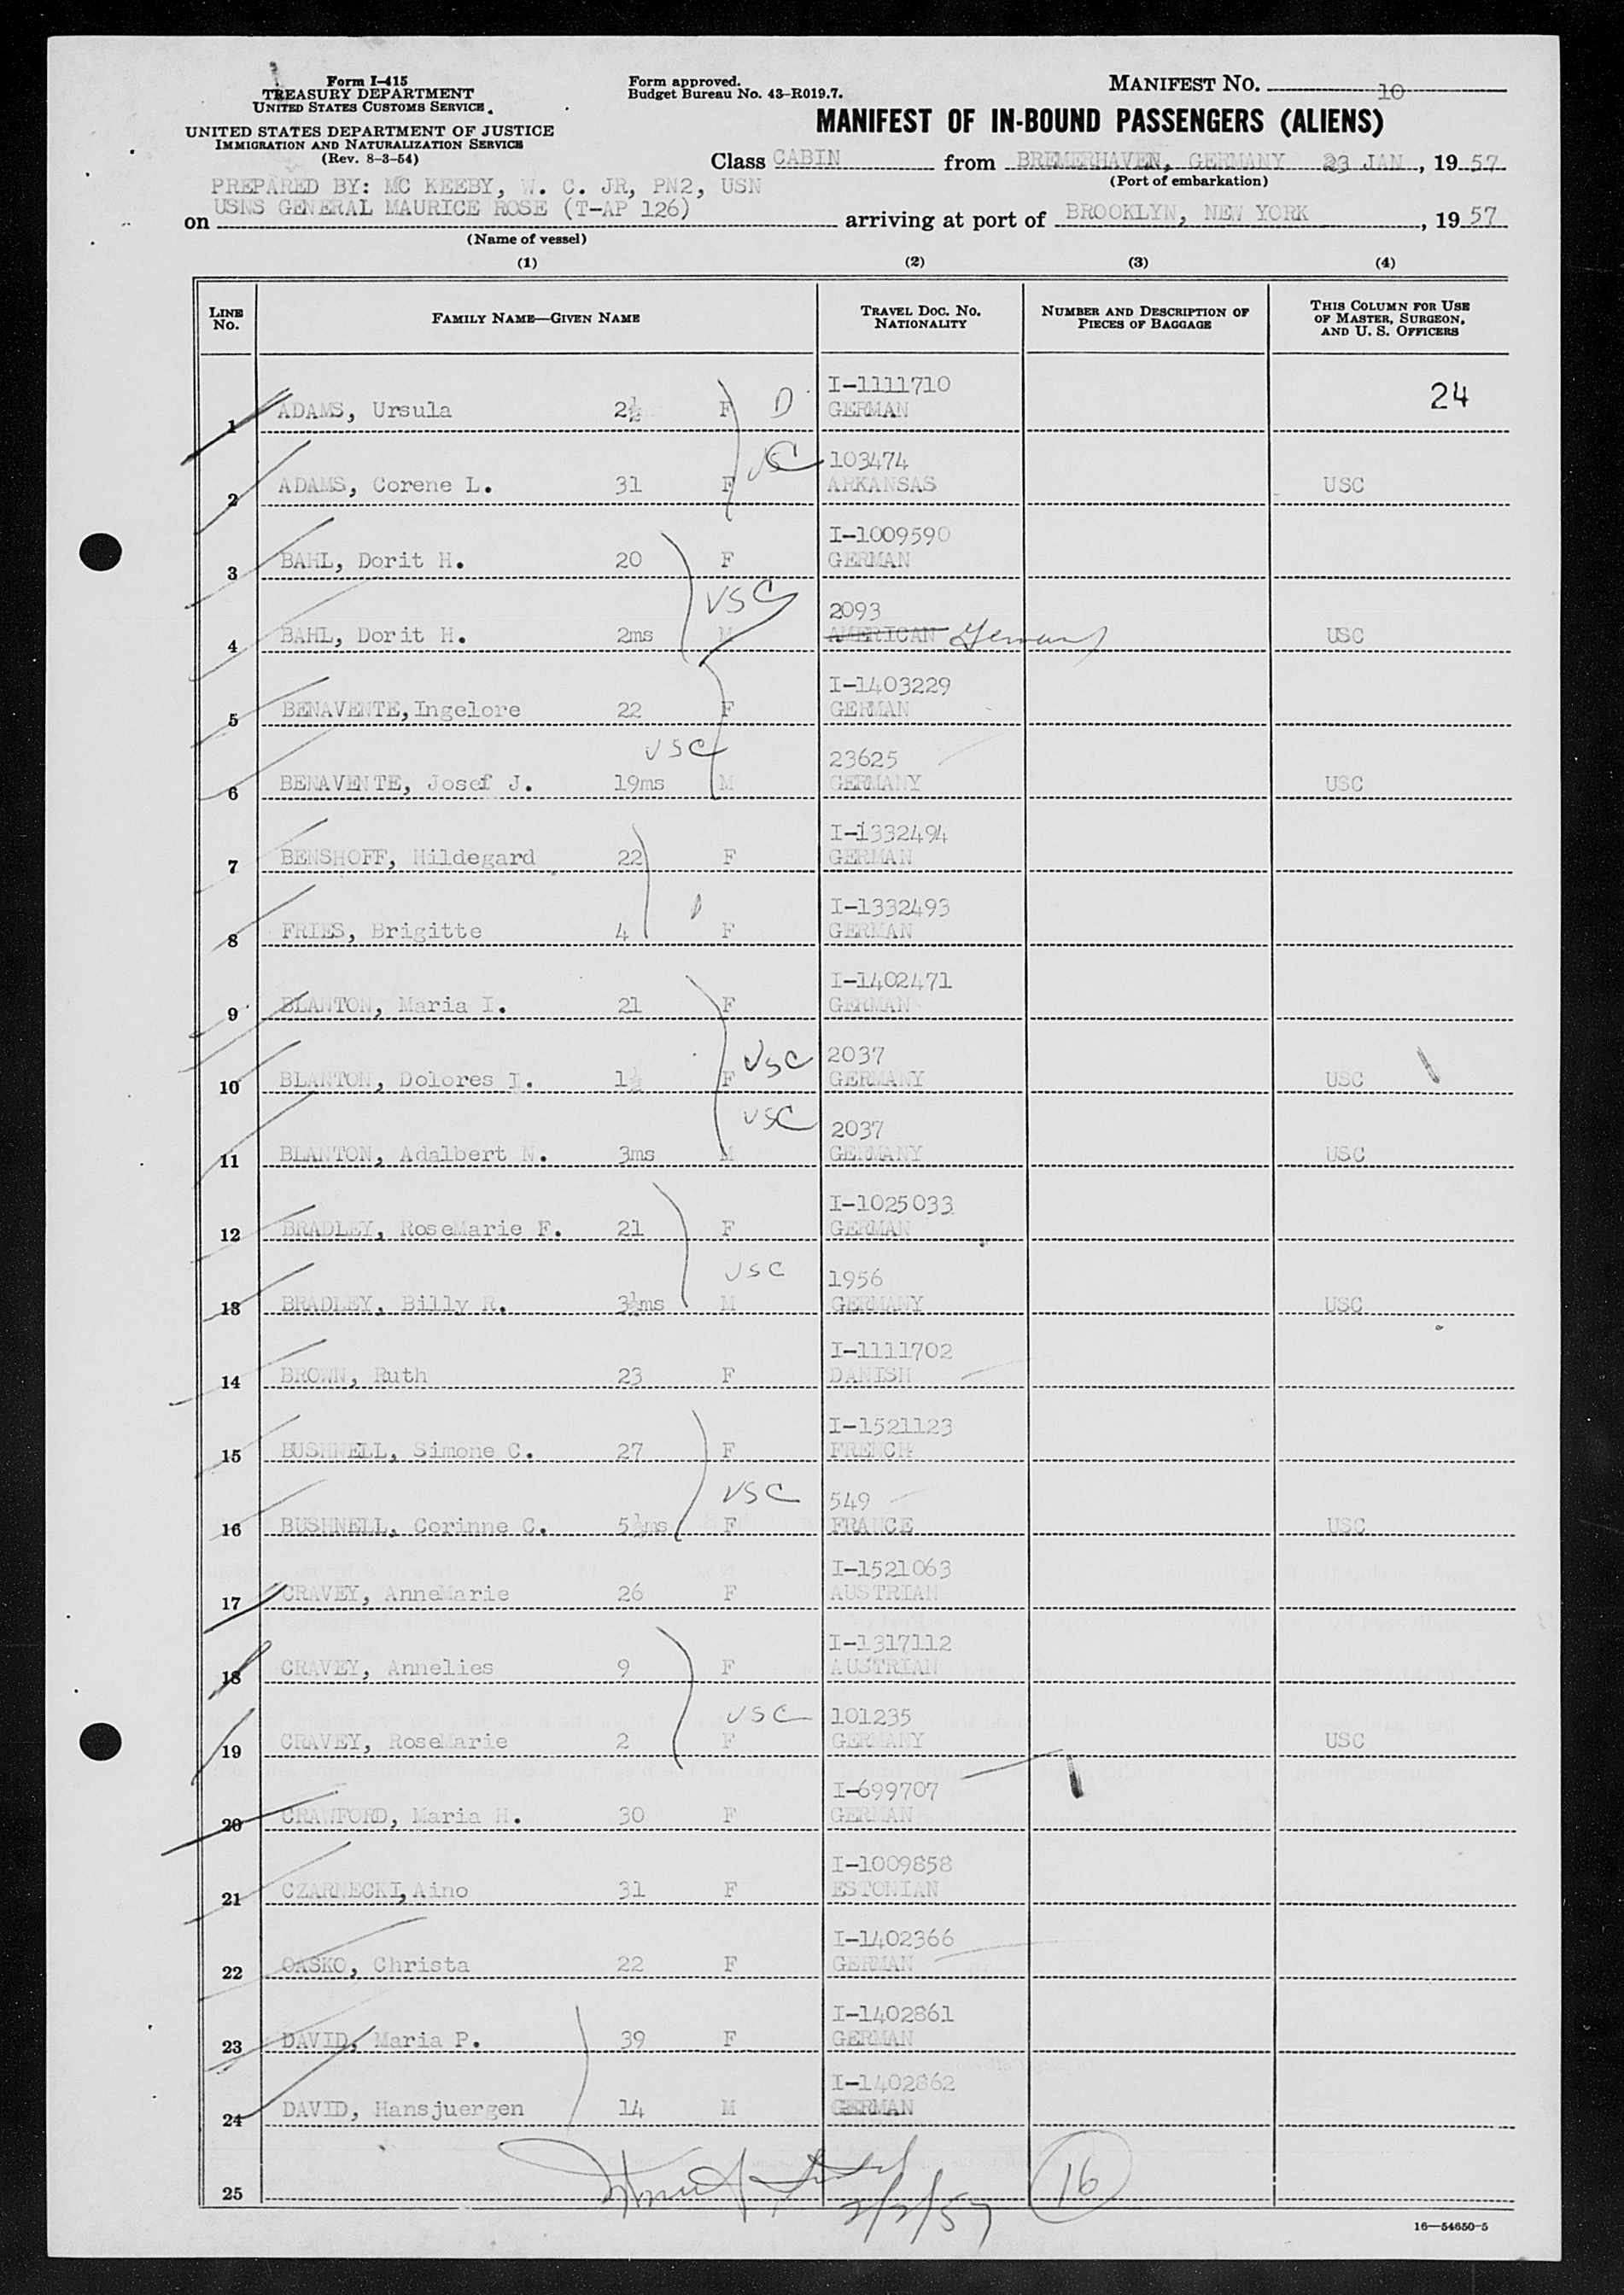 Form I-415
TREASURY DEPARTMENT
UNITED STATES CUSTOMS SERVICE
UNITED STATES DEPARTMENT OF JUSTICE
IMMIGRATION AND NATURALIZATION SERVICE
(Rev. 8-3-54)
Form approved.
Budget Bureau No. 43-R019.7.
MANIFEST NO. 10
MANIFEST OF IN-BOUND PASSENGERS (ALIENS)
Class CABIN from BREMERHAVEN, GERMANY 23 JAN, 1957
(Port of embarkation)
PREPARED BY: MC KEEBY, W. C. JR, PN2, USN
on USNS GENERAL MAURICE ROSE (T-AP 126) arriving at port of BROOKLYN, NEW YORK, 1957
(Name of vessel)
(1) (2) (3) (4)
LINE No. FAMILY NAME—GIVEN NAME TRAVEL DOC. NO. NATIONALITY NUMBER AND DESCRIPTION OF PIECES OF BAGGAGE THIS COLUMN FOR USE OF MASTER, SURGEON, AND U. S. OFFICERS
I-1111710 24
1 ADAMS, Ursula 2½ F D GERMAN
USC 103474
2 ADAMS, Corene L. 31 F ARKANSAS USC
I-1009590
3 BAHL, Dorit H. 20 F GERMAN
USC 2093
4 BAHL, Dorit H. 2ms M AMERICAN German USC
I-1403229
5 BENAVENTE, Ingelore 22 F GERMAN
USC 23625
6 BENAVENTE, Josef J. 19ms M GERMANY USC
I-1332494
7 BENSHOFF, Hildegard 22 F GERMAN
I-1332493
8 FRIES, Brigitte 4 F GERMAN
I-1402471
9 BLANTON, Maria I. 21 F GERMAN
USC 2037
10 BLANTON, Dolores I. 1½ F GERMANY USC
USC 2037
11 BLANTON, Adalbert N. 3ms M GERMANY USC
I-1025033
12 BRADLEY, RoseMarie F. 21 F GERMAN
USC 1956
13 BRADLEY, Billy R. 3½ms M GERMANY USC
I-1111702
14 BROWN, Ruth 23 F DANISH
I-1521123
15 BUSHNELL, Simone C. 27 F FRENCH
USC 549
16 BUSHNELL, Corinne C. 5½ms F FRANCE USC
I-1521063
17 CRAVEY, AnneMarie 26 F AUSTRIAN
I-1317112
18 CRAVEY, Annelies 9 F AUSTRIAN
USC 101235
19 CRAVEY, RoseMarie 2 F GERMANY USC
I-699707
20 CRAWFORD, Maria H. 30 F GERMAN
I-1009858
21 CZARNECKI, Aino 31 F ESTONIAN
I-1402366
22 OASKO, Christa 22 F GERMAN
I-1402861
23 DAVID, Maria P. 39 F GERMAN
I-1402862
24 DAVID, Hansjuergen 14 M GERMAN
25 2/2/57 16
16—54650-5